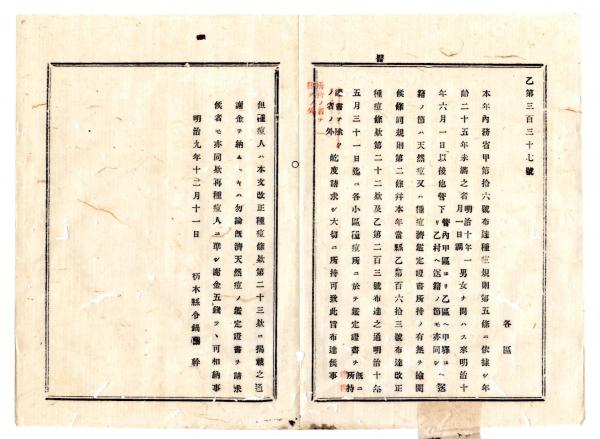 乙第三百三十七號
各區
本年內務省甲第拾六號布達種痘規則第五條ニ依據シ年
齡二十五年未滿之者明治十年一月一日調男女ヲ問ハス來明治十
年六月一日以後他管下管內甲區ヨリ乙區ヘ甲驛ヨリ乙村ヘ送籍ノ節モ亦同シヘ送
籍ノ節ハ天然痘又ハ種痘濟鑑定證書所持ノ有無ヲ檢閱
候條同規則第二條幷本年當縣乙第百六拾三號布達改正
種痘條欵第二十二欵及乙第二百三號布達之通明治十年
五月三十一日迄ニ各小區種痘所ニ於テ鑑定證書ヲ既ニ所持
ノ者ノ外屹度請求シ大切ニ所持可致此旨布達候事
但種痘人ハ本文改正種痘條欵第二十三欵ニ揭載之通
謝金ヲ納ムヘキハ勿論既濟天然痘ノ鑑定證書ヲ請求
候者モ亦同欵再種痘人ニ準シ謝金五錢ツヽ可相納事
明治九年十二月十一日
栃木縣令鍋島幹